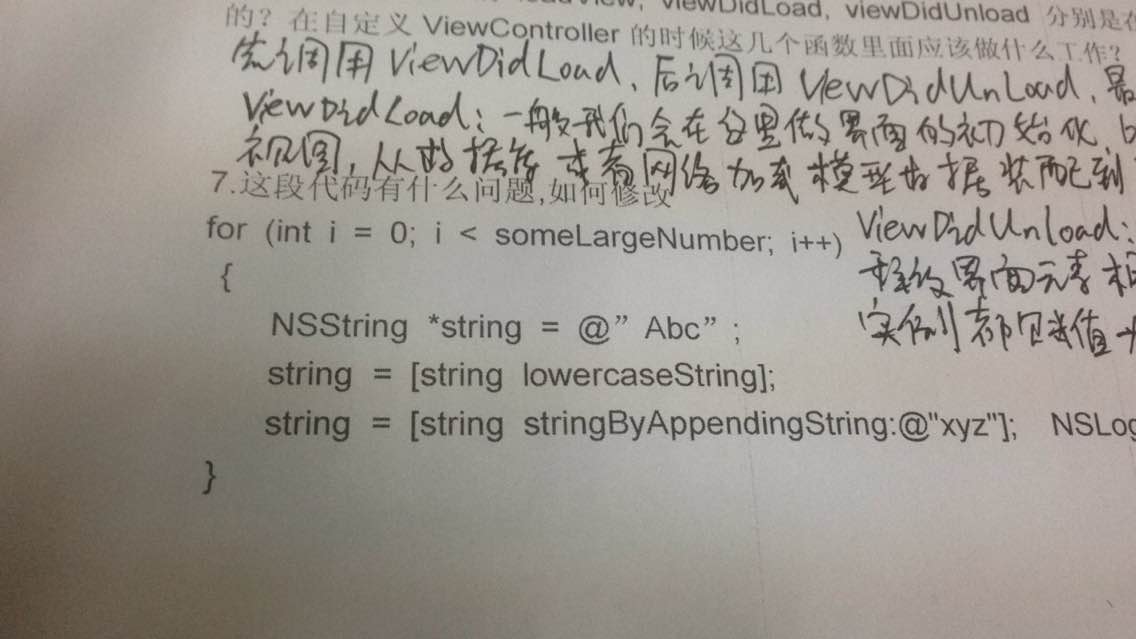 View, viewDidLoad, viewDidUnload 分别是在
的？在自定义 ViewController 的时候这几个函数里面应该做什么工作？
先调用 ViewDidLoad, 后调用 ViewDidUnLoad, 最
ViewDidLoad: 一般我们会在这里做界面的初始化
视图, 从数据库或者网络加载模型数据装配到
7.这段代码有什么问题,如何修改
for (int i = 0; i < someLargeNumber; i++)
ViewDidUnload:
{
界面元素
NSString *string = @” Abc” ;
实例 值
string = [string lowercaseString];
string = [string stringByAppendingString:@"xyz"]; NSLog
}